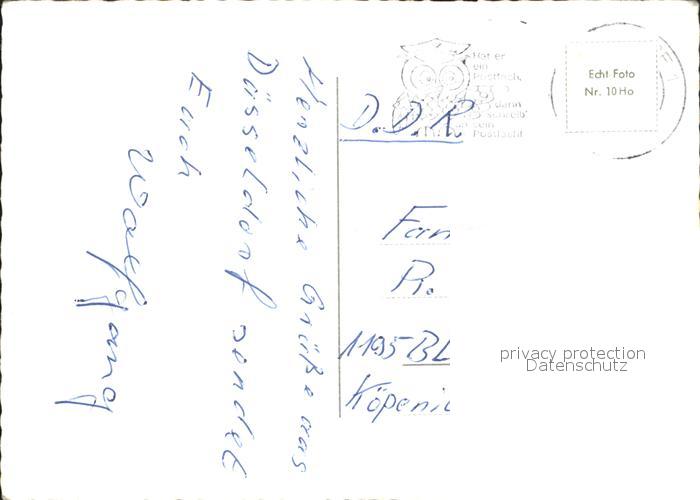 Herzliche Grüße aus
Düsseldorf sendet
Euch
Wolfgang
Hat er
ein
Postfach,
dann
schreib'
sein
Postfach!
Echt Foto
Nr. 10 Ho
D.D.R.
Fam
1195 BL
Köpenic
privacy protection
Datenschutz